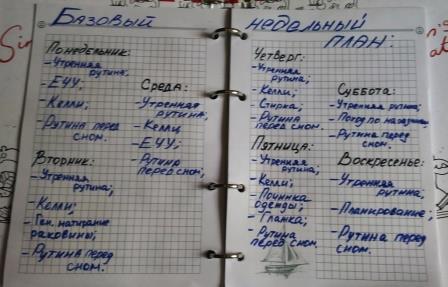 Базовый
Понедельник:
- Утренняя
рутина;
- ЕЧУ;
- Келли;
- Рутина перед
сном.
Вторник:
- Утренняя
рутина;
- Келли;
- Ген. натирание
раковины;
- Рутина перед
сном.
Среда:
- Утренняя
рутина;
- Келли
- ЕЧУ;
- Рутина
перед сном.
недельный
план:
Четверг:
- Утренняя
рутина;
- Келли;
- Стирка;
- Рутина
перед сном.
Пятница:
- Утренняя
рутина;
- Келли;
- Починка
одежды;
- Глажка;
- Рутина
перед сном.
Суббота:
- Утренняя рутина;
- Поход по
- Рутина перед
сном.
Воскресенье:
- Утренняя
рутина;
- Планирование;
- Рутина перед
сном.